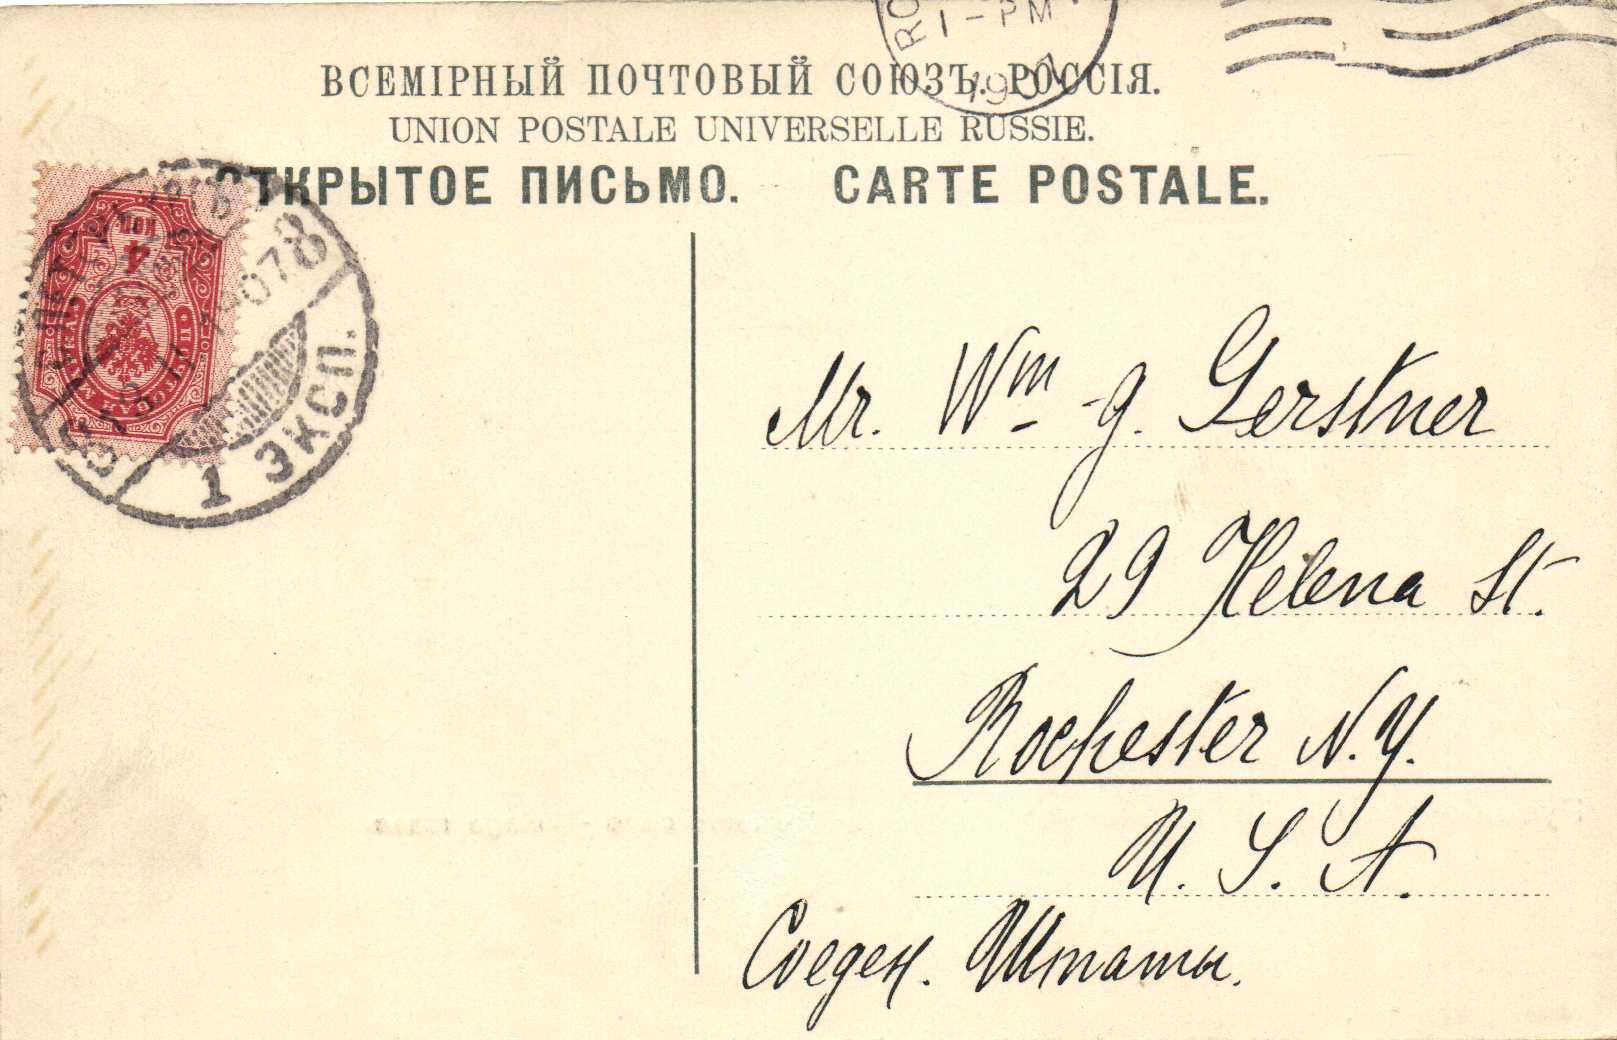 1-PM
1907
ВСЕМІРНЫЙ ПОЧТОВЫЙ СОЮЗЪ. РОССІЯ.
UNION POSTALE UNIVERSELLE RUSSIE.
ОТКРЫТОЕ ПИСЬМО. CARTE POSTALE.
4
КОП.
1 ЭКСП.
Mr. Wm. G. Gerstner
29 Helena St.
Rochester N.Y.
U. S. A.
Соеден. Штаты.